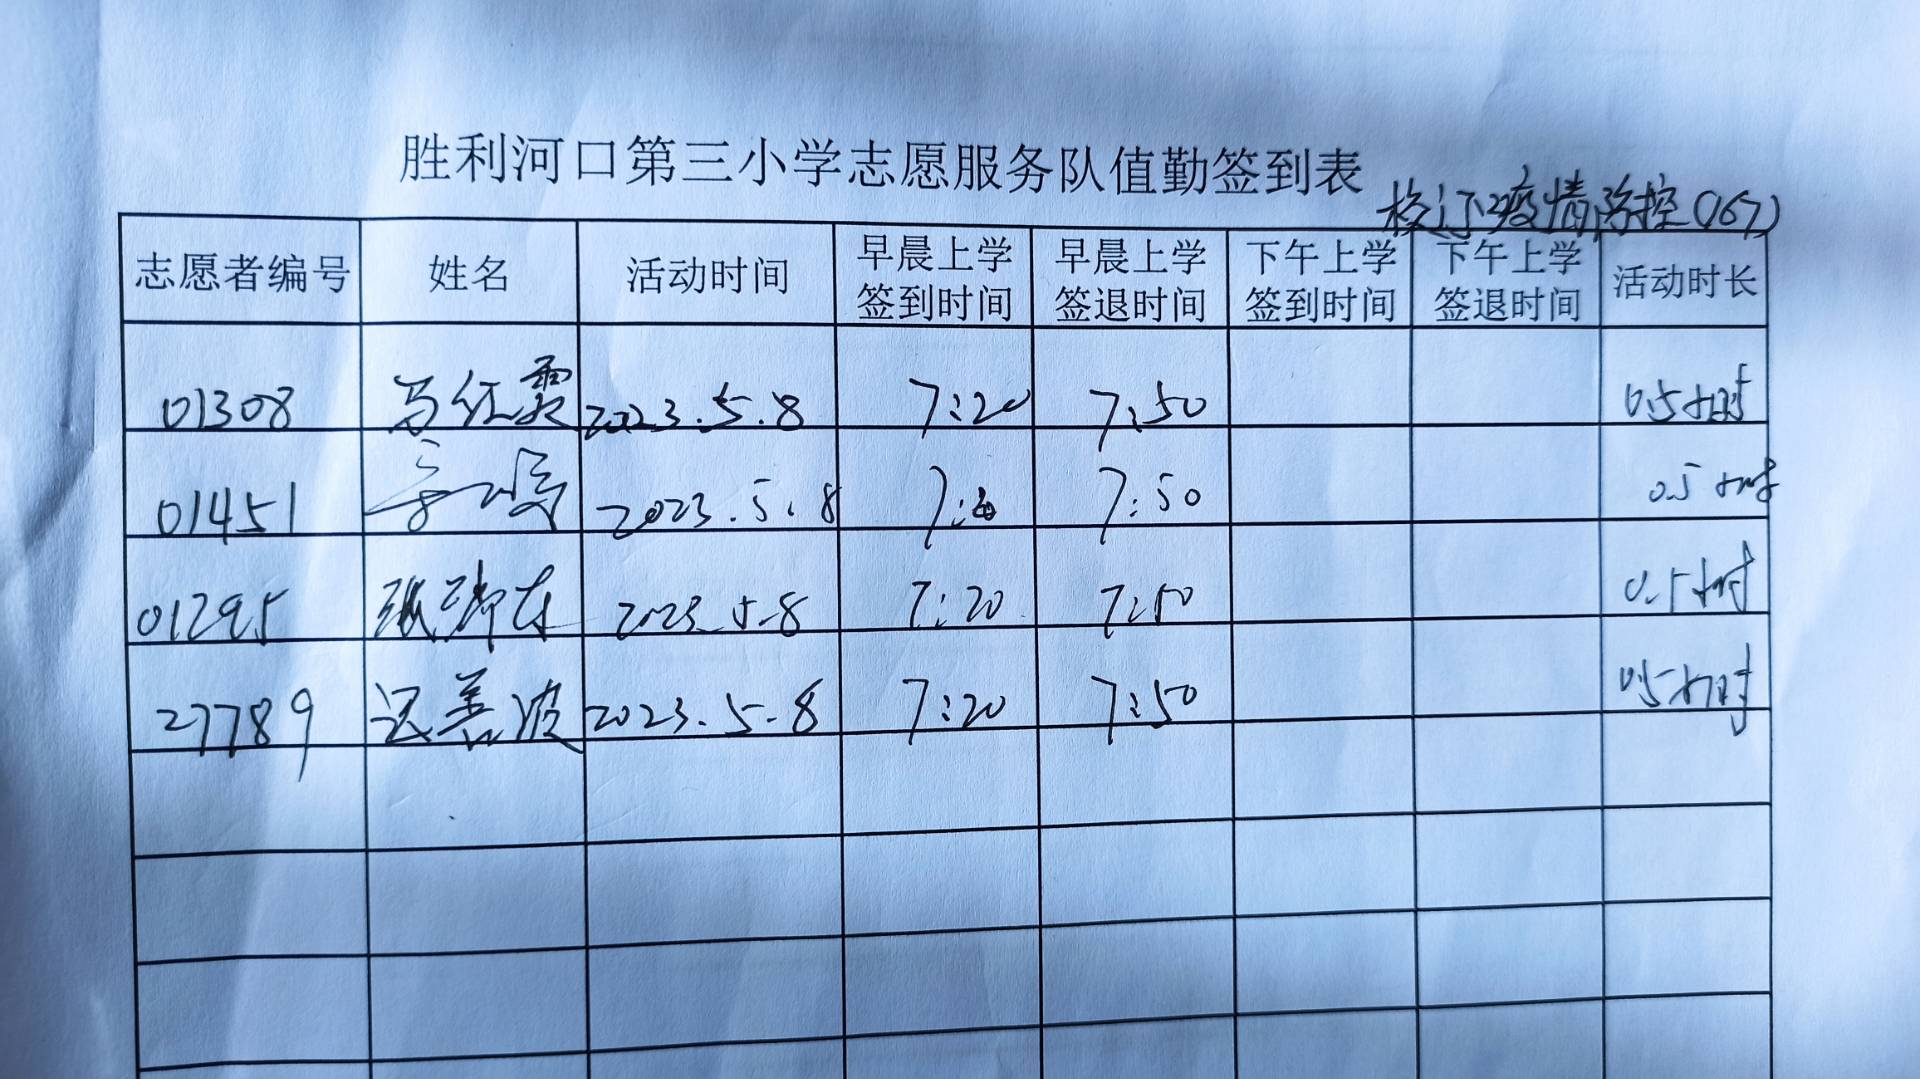 胜利河口第三小学志愿服务队值勤签到表
校门口疫情防控(167)
志愿者编号 姓名 活动时间 早晨上学签到时间 早晨上学签退时间 下午上学签到时间 下午上学签退时间 活动时长
01308 马红霞 2023.5.8 7:20 7:50 0.5小时
01451 2023.5.8 7:50 0.5小时
01295 2023.5.8 7:20 7:50 0.5小时
27789 善波 2023.5.8 7:20 7:50 0.5小时